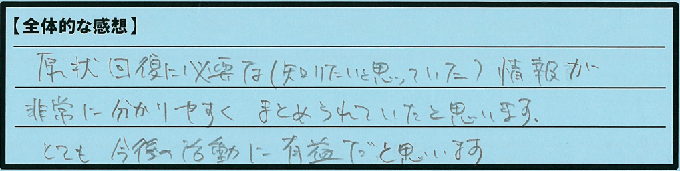 【全体的な感想】
原状回復に必要な(知りたいと思っていた)情報が
非常に分かりやすく まとめられていたと思います。
とても 今後の活動に有益だと思います